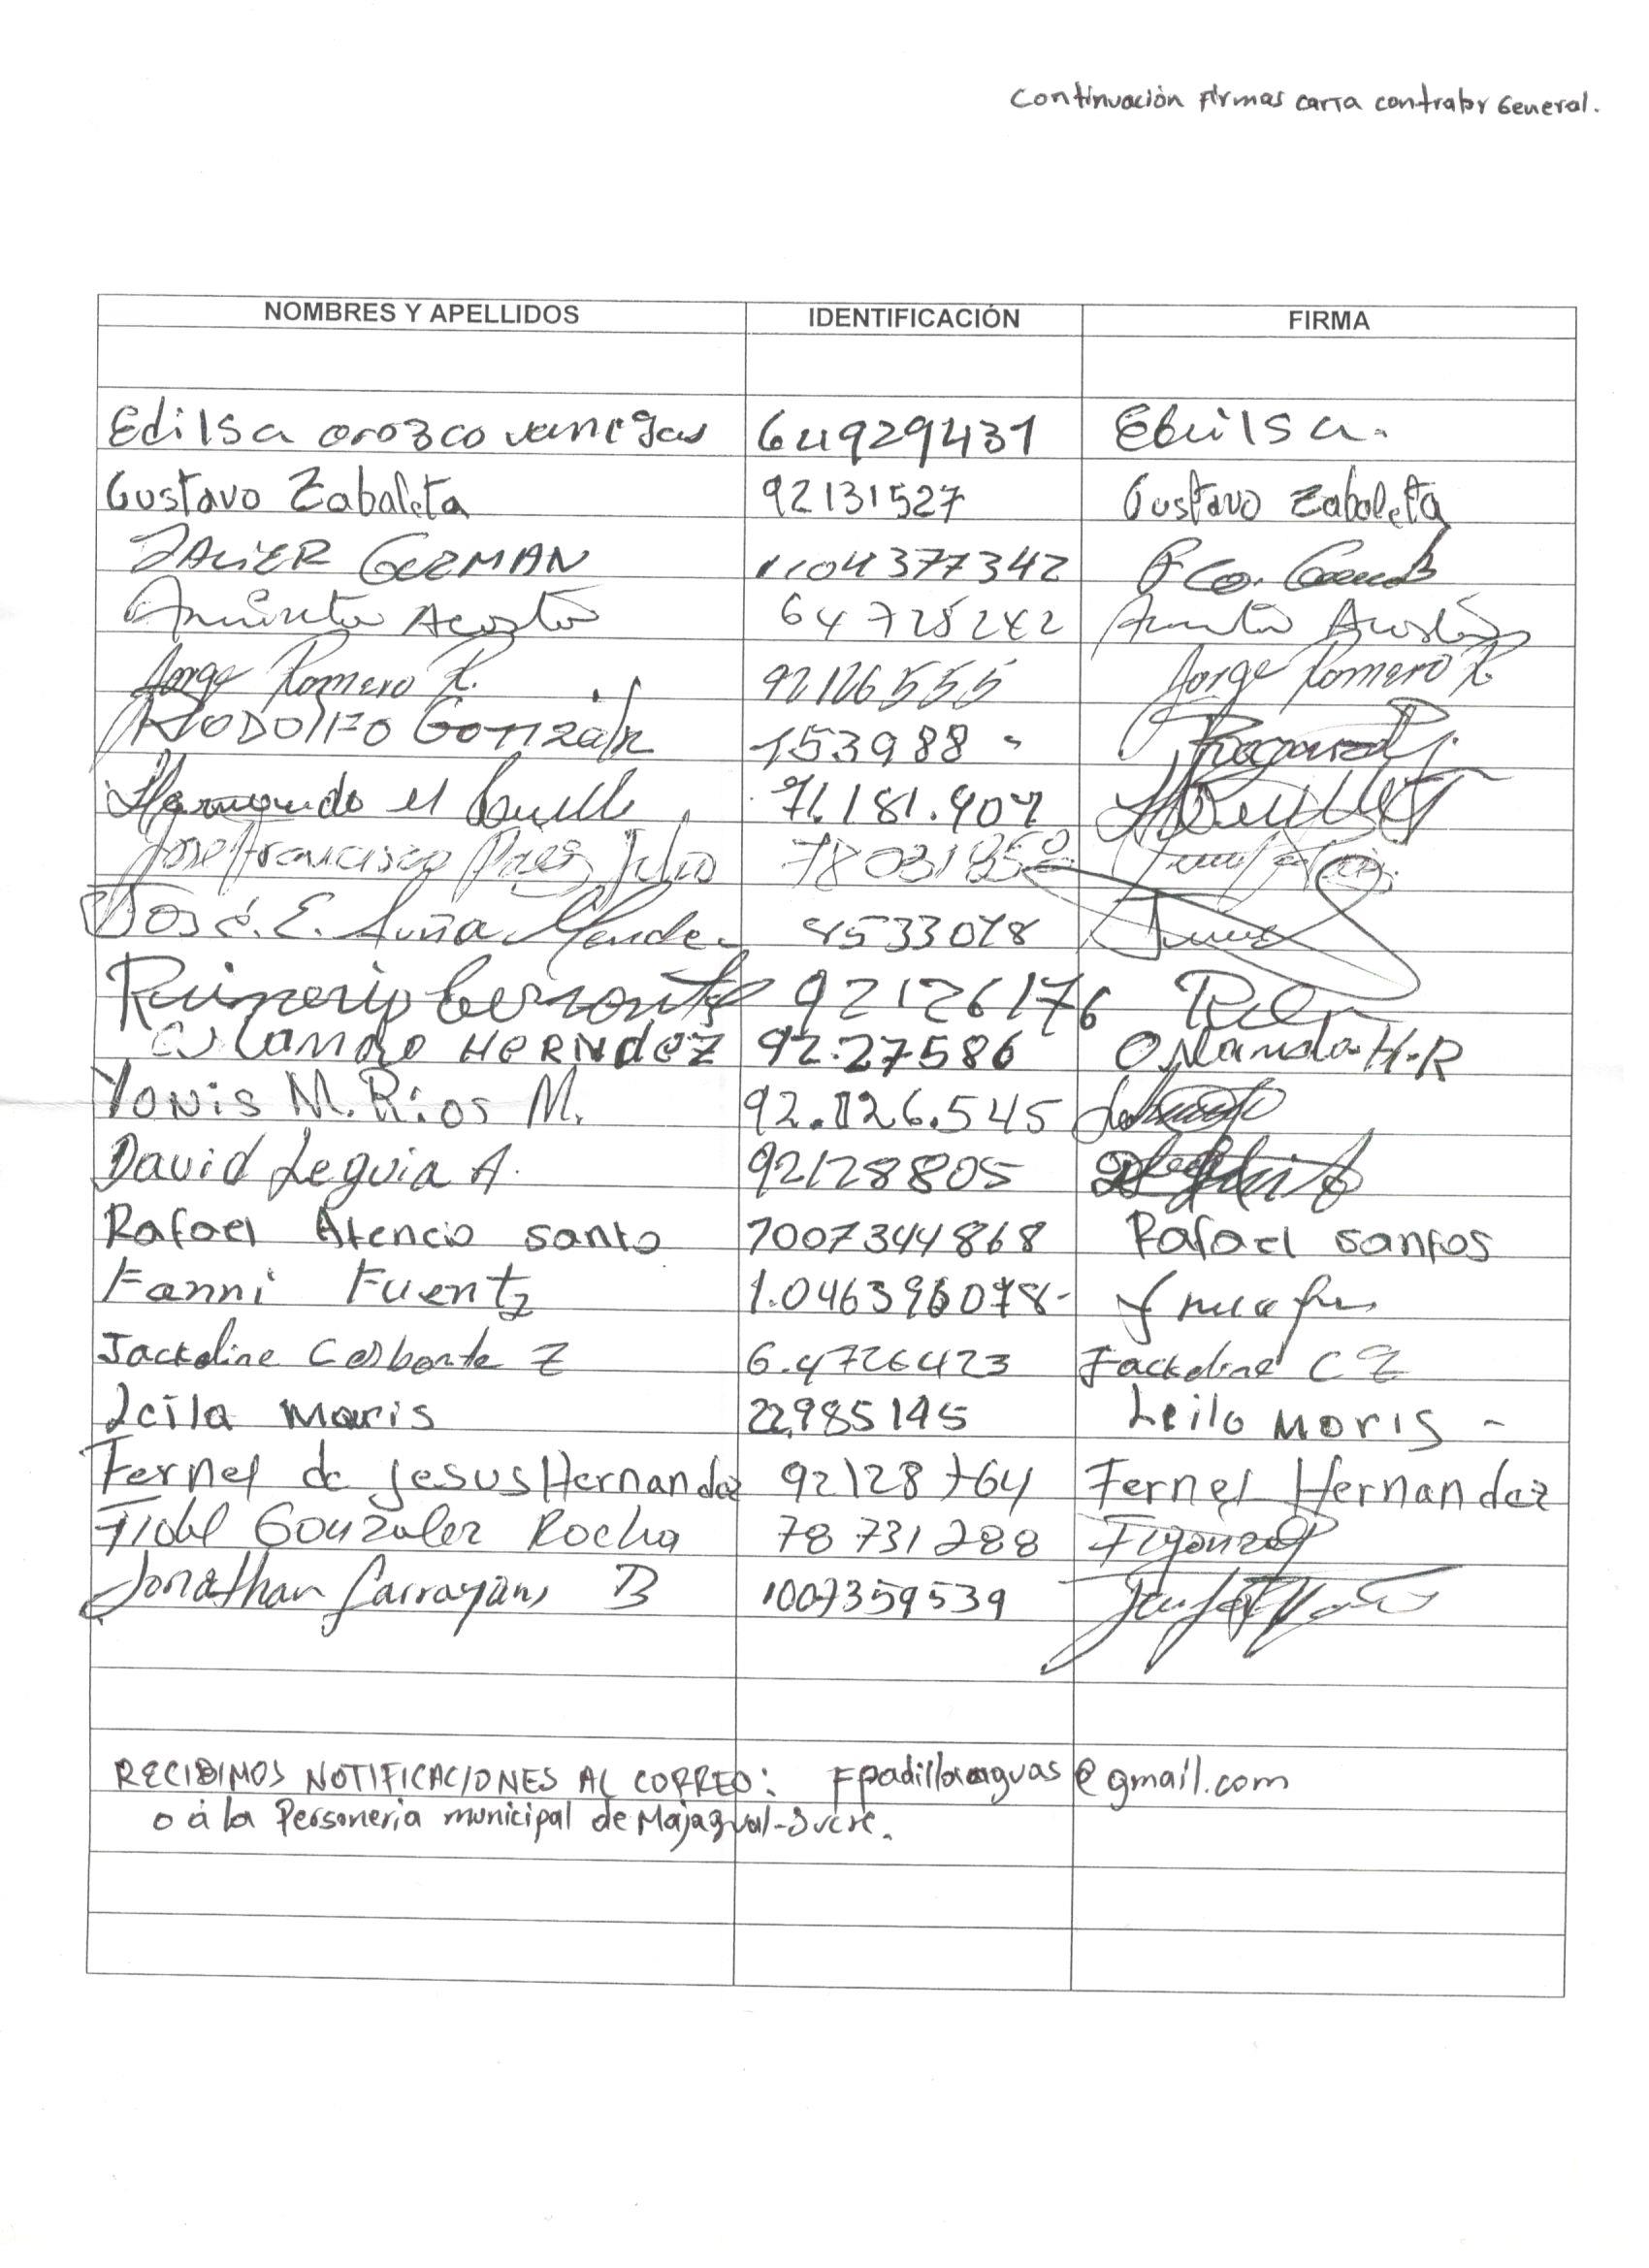 Continuación Firmas carta contralor General.
NOMBRES Y APELLIDOS IDENTIFICACIÓN FIRMA
Edilsa orozco vanegas 64929431 Edilsa.
Gustavo Zabaleta 92131527 Gustavo Zabaleta
JAVIER GUZMAN 1104377342
Acosta 64728242 Acosta
Jorge Romero R. 92126555 Jorge Romero R.
RODOLFO Gonzalez 153988
71.181.907
Jose Francisco Paez Julio 7803185
José. E. Mendez 4533078
92126176
Orlando HERNdez 92.27586 Orlando H-R
YONis M. Rios M. 92.126.545
David Leguia A. 92128805
Rafael Atencio santo 1007344868 Rafael santos
Fanni Fuentz 1.046396078-
Jackeline Carbonte Z 6.4726423 Jackeline C Z
Leila Moris 22.985145 Leila Moris -
Fernel de Jesus Hernandez 92128764 Fernel Hernandez
Fidel Gonzalez Rocha 78 731288 Figonzal
Jonathan B 1007359539
RECIBIMOS NOTIFICACIONES AL CORREO: Fpadillaaguas@gmail.com
o á la Personeria municipal de Majagual-Sucre.